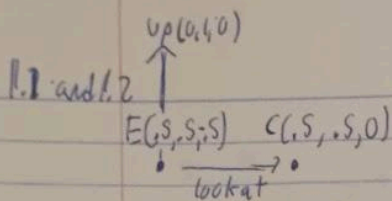 up(0,1,0)
1.1 and 1.2
E(.5,.5,-.5) C(.5, .5,0)
lookat